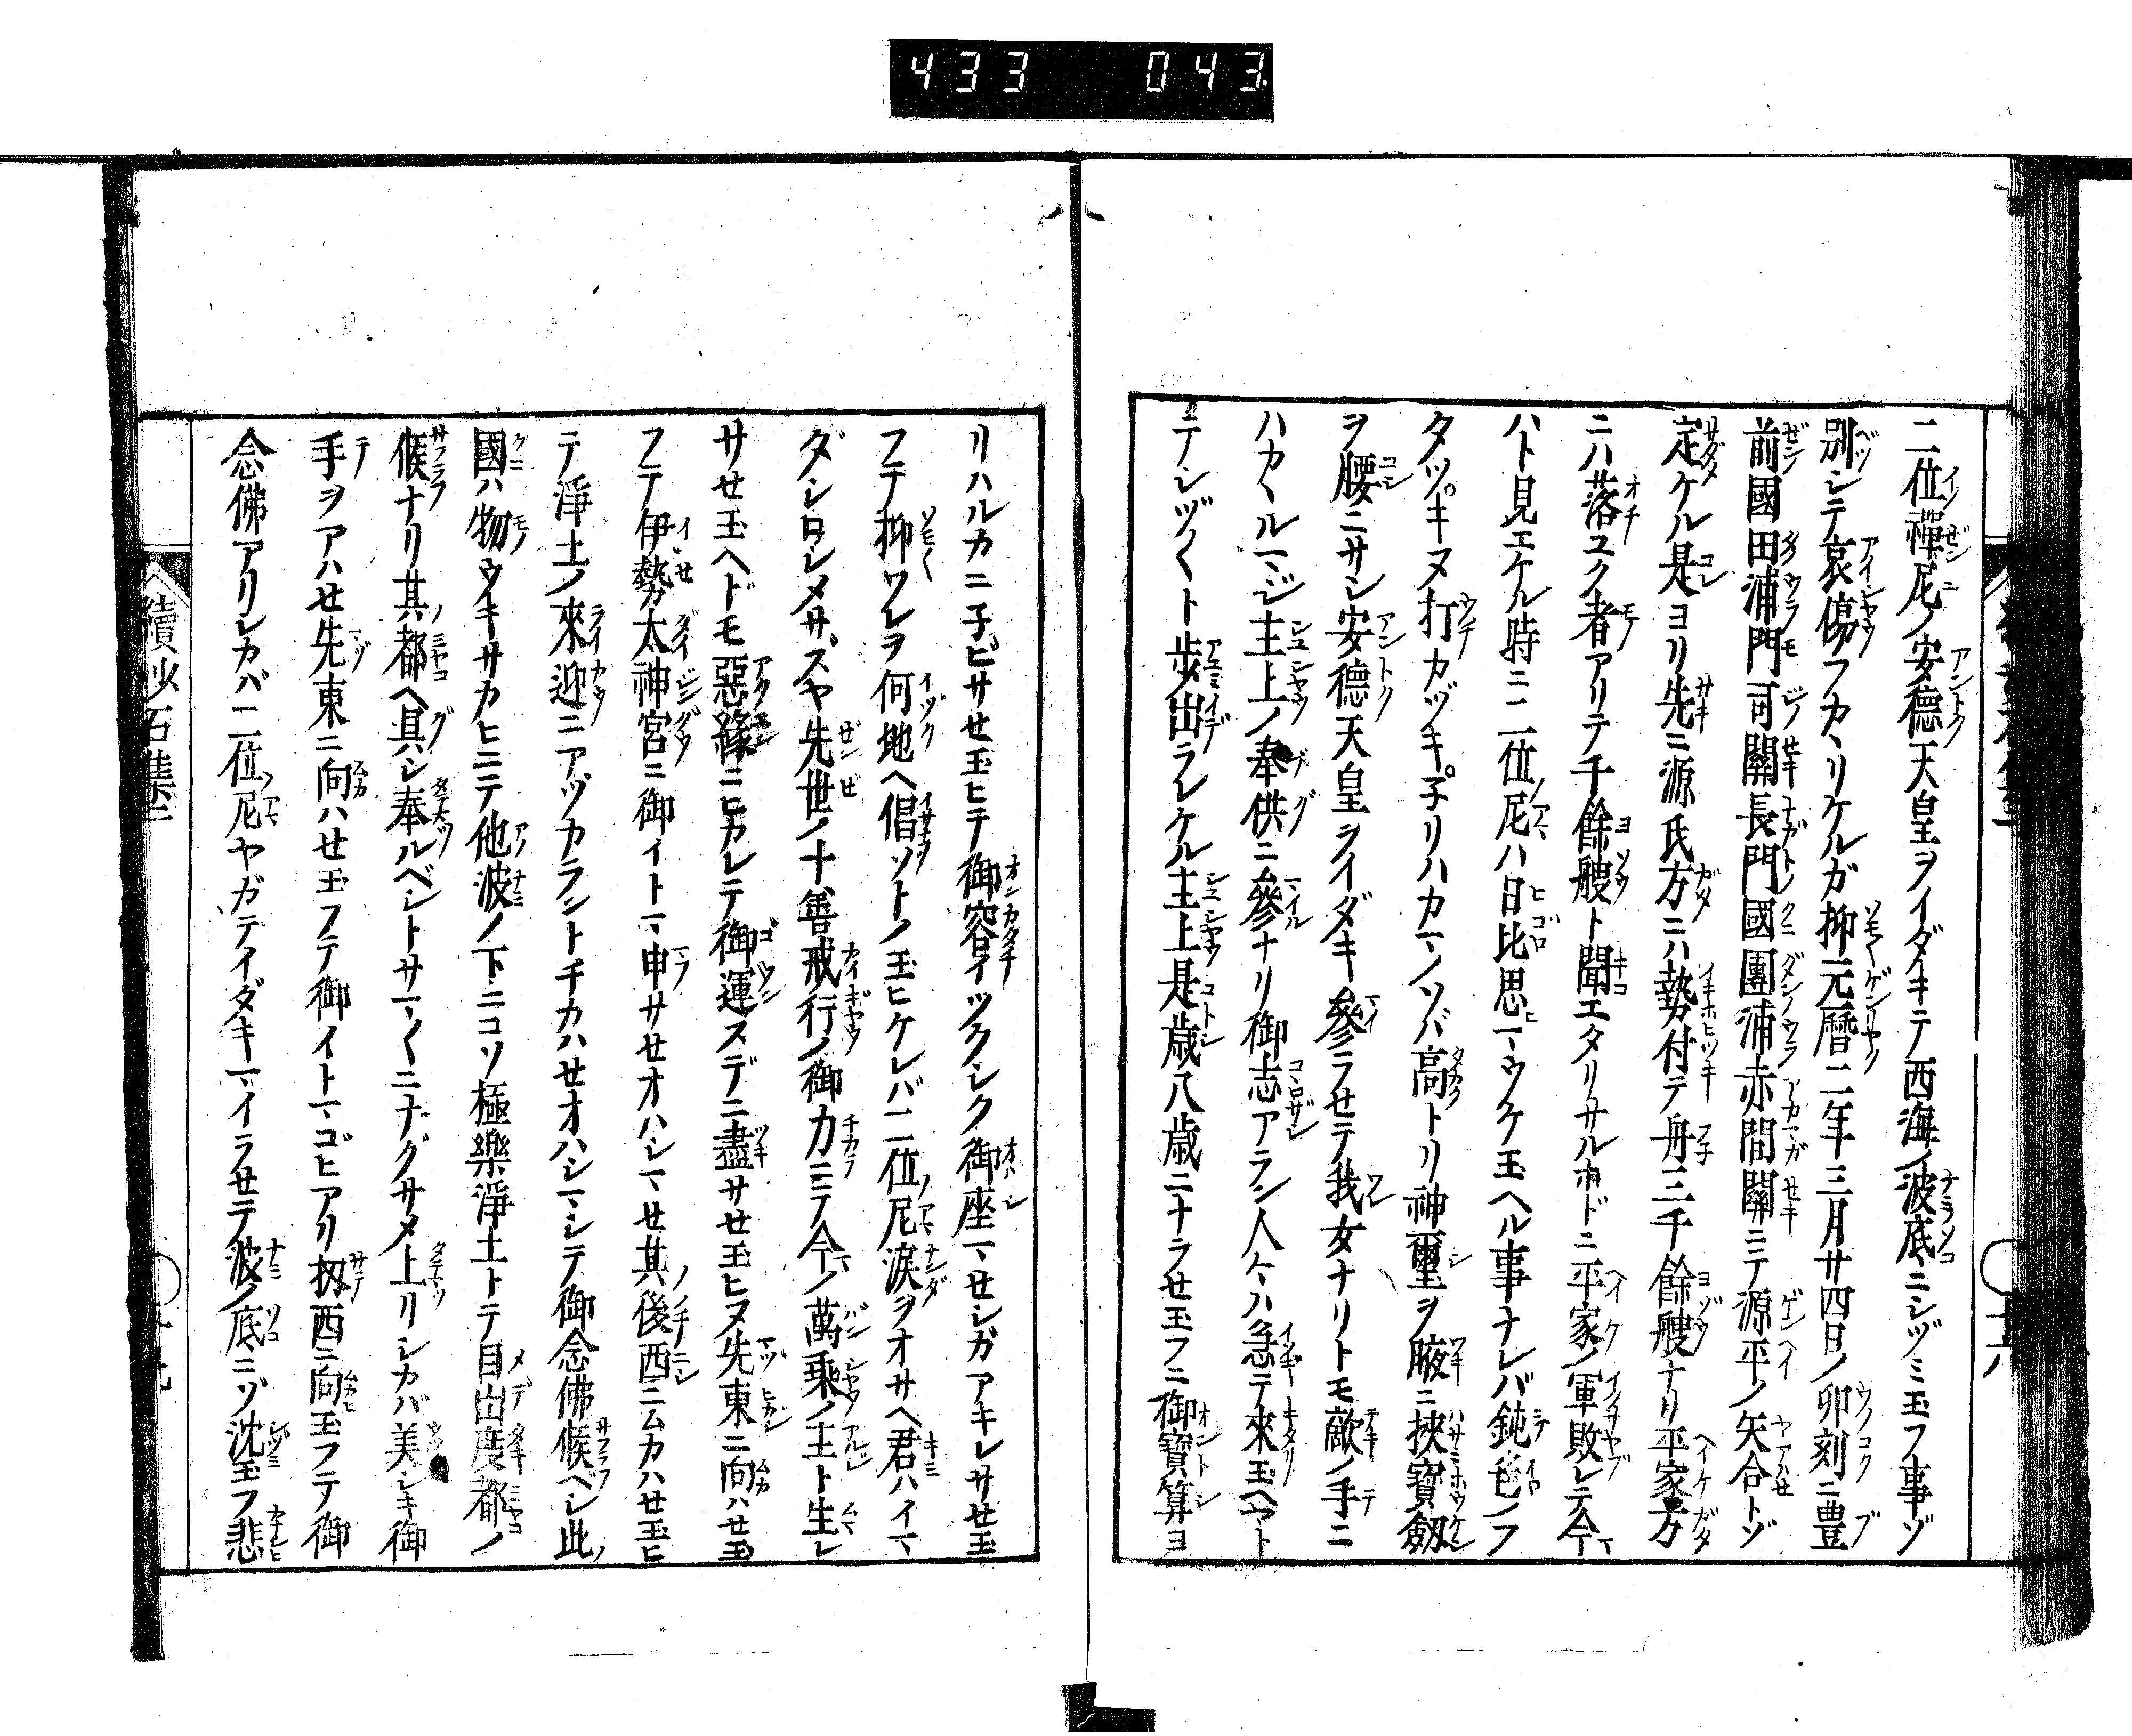 433 043
二位禪尼ノ安德天皇ヲイダキテ西海ノ波底ニシヅミ玉フ事ゾ
別シテ哀傷フカヽリケルガ抑元曆二年三月廿四日ノ卯刻ニ豊
前國田浦門司關長門國團浦赤間關ニテ源平ノ矢合トゾ
定ケル是ヨリ先ニ源氏方ニハ勢付テ舟三千餘艘ナリ平家方
ニハ落ユク者アリテ千餘艘ト聞エタリサルホドニ平家ノ軍敗レテ今
ハト見エケル時ニ二位尼ハ日比思マウケ玉ヘル事ナレバ鈍色ノフ
タツギヌ打カヅキ子リハカマノソバ高トリ神璽ヲ腋ニ挾寶劔
ヲ腰ニサシ安德天皇ヲイダキ參ラセテ我女ナリトモ敵ノ手ニ
ハカヽルマジ主上ノ奉供ニ參ナリ御志アラン人々ハ急テ來玉ヘヤト
テシヅ〱ト歩出ラレケル主上是歳八歳ニナラセ玉フニ御寶算ヨ
リハルカニ子ビサせ玉ヒテ御容イツクシク御座マせシガアキレサせ玉
フテ抑ワレヲ何地ヘ倡ソトノ玉ヒケレバ二位尼淚ヲオサヘ君ハイマ
ダシロシメサズヤ先世ノ十善戒行ノ御力ニテ今ノ萬乘ノ主ト生レ
サせ玉ヘドモ惡緣ニヒカレテ御運スデニ盡サせ玉ヒヌ先東ニ向ハせ玉
フテ伊勢太神宮ニ御イトマ申サせオハシマせ其後西ニムカハせ玉ヒ
テ淨土ノ來迎ニアヅカラントチカハせオハシマシテ御念佛候ベシ此
國ハ物ウキサカヒニテ他波ノ下ニコソ極樂淨土トテ目出度都ノ
候ナリ其都ヘ具シ奉ルベシトサマ〱ニナグサメ上リシカバ美シキ御
手ヲアハせ先東ニ向ハせ玉フテ御イトマゴヒアリ扨西ニ向玉フテ御
念佛アリシカバ二位尼ヤガテイダキマイラせテ波ノ底ニゾ沈玉フ悲
續沙石集二